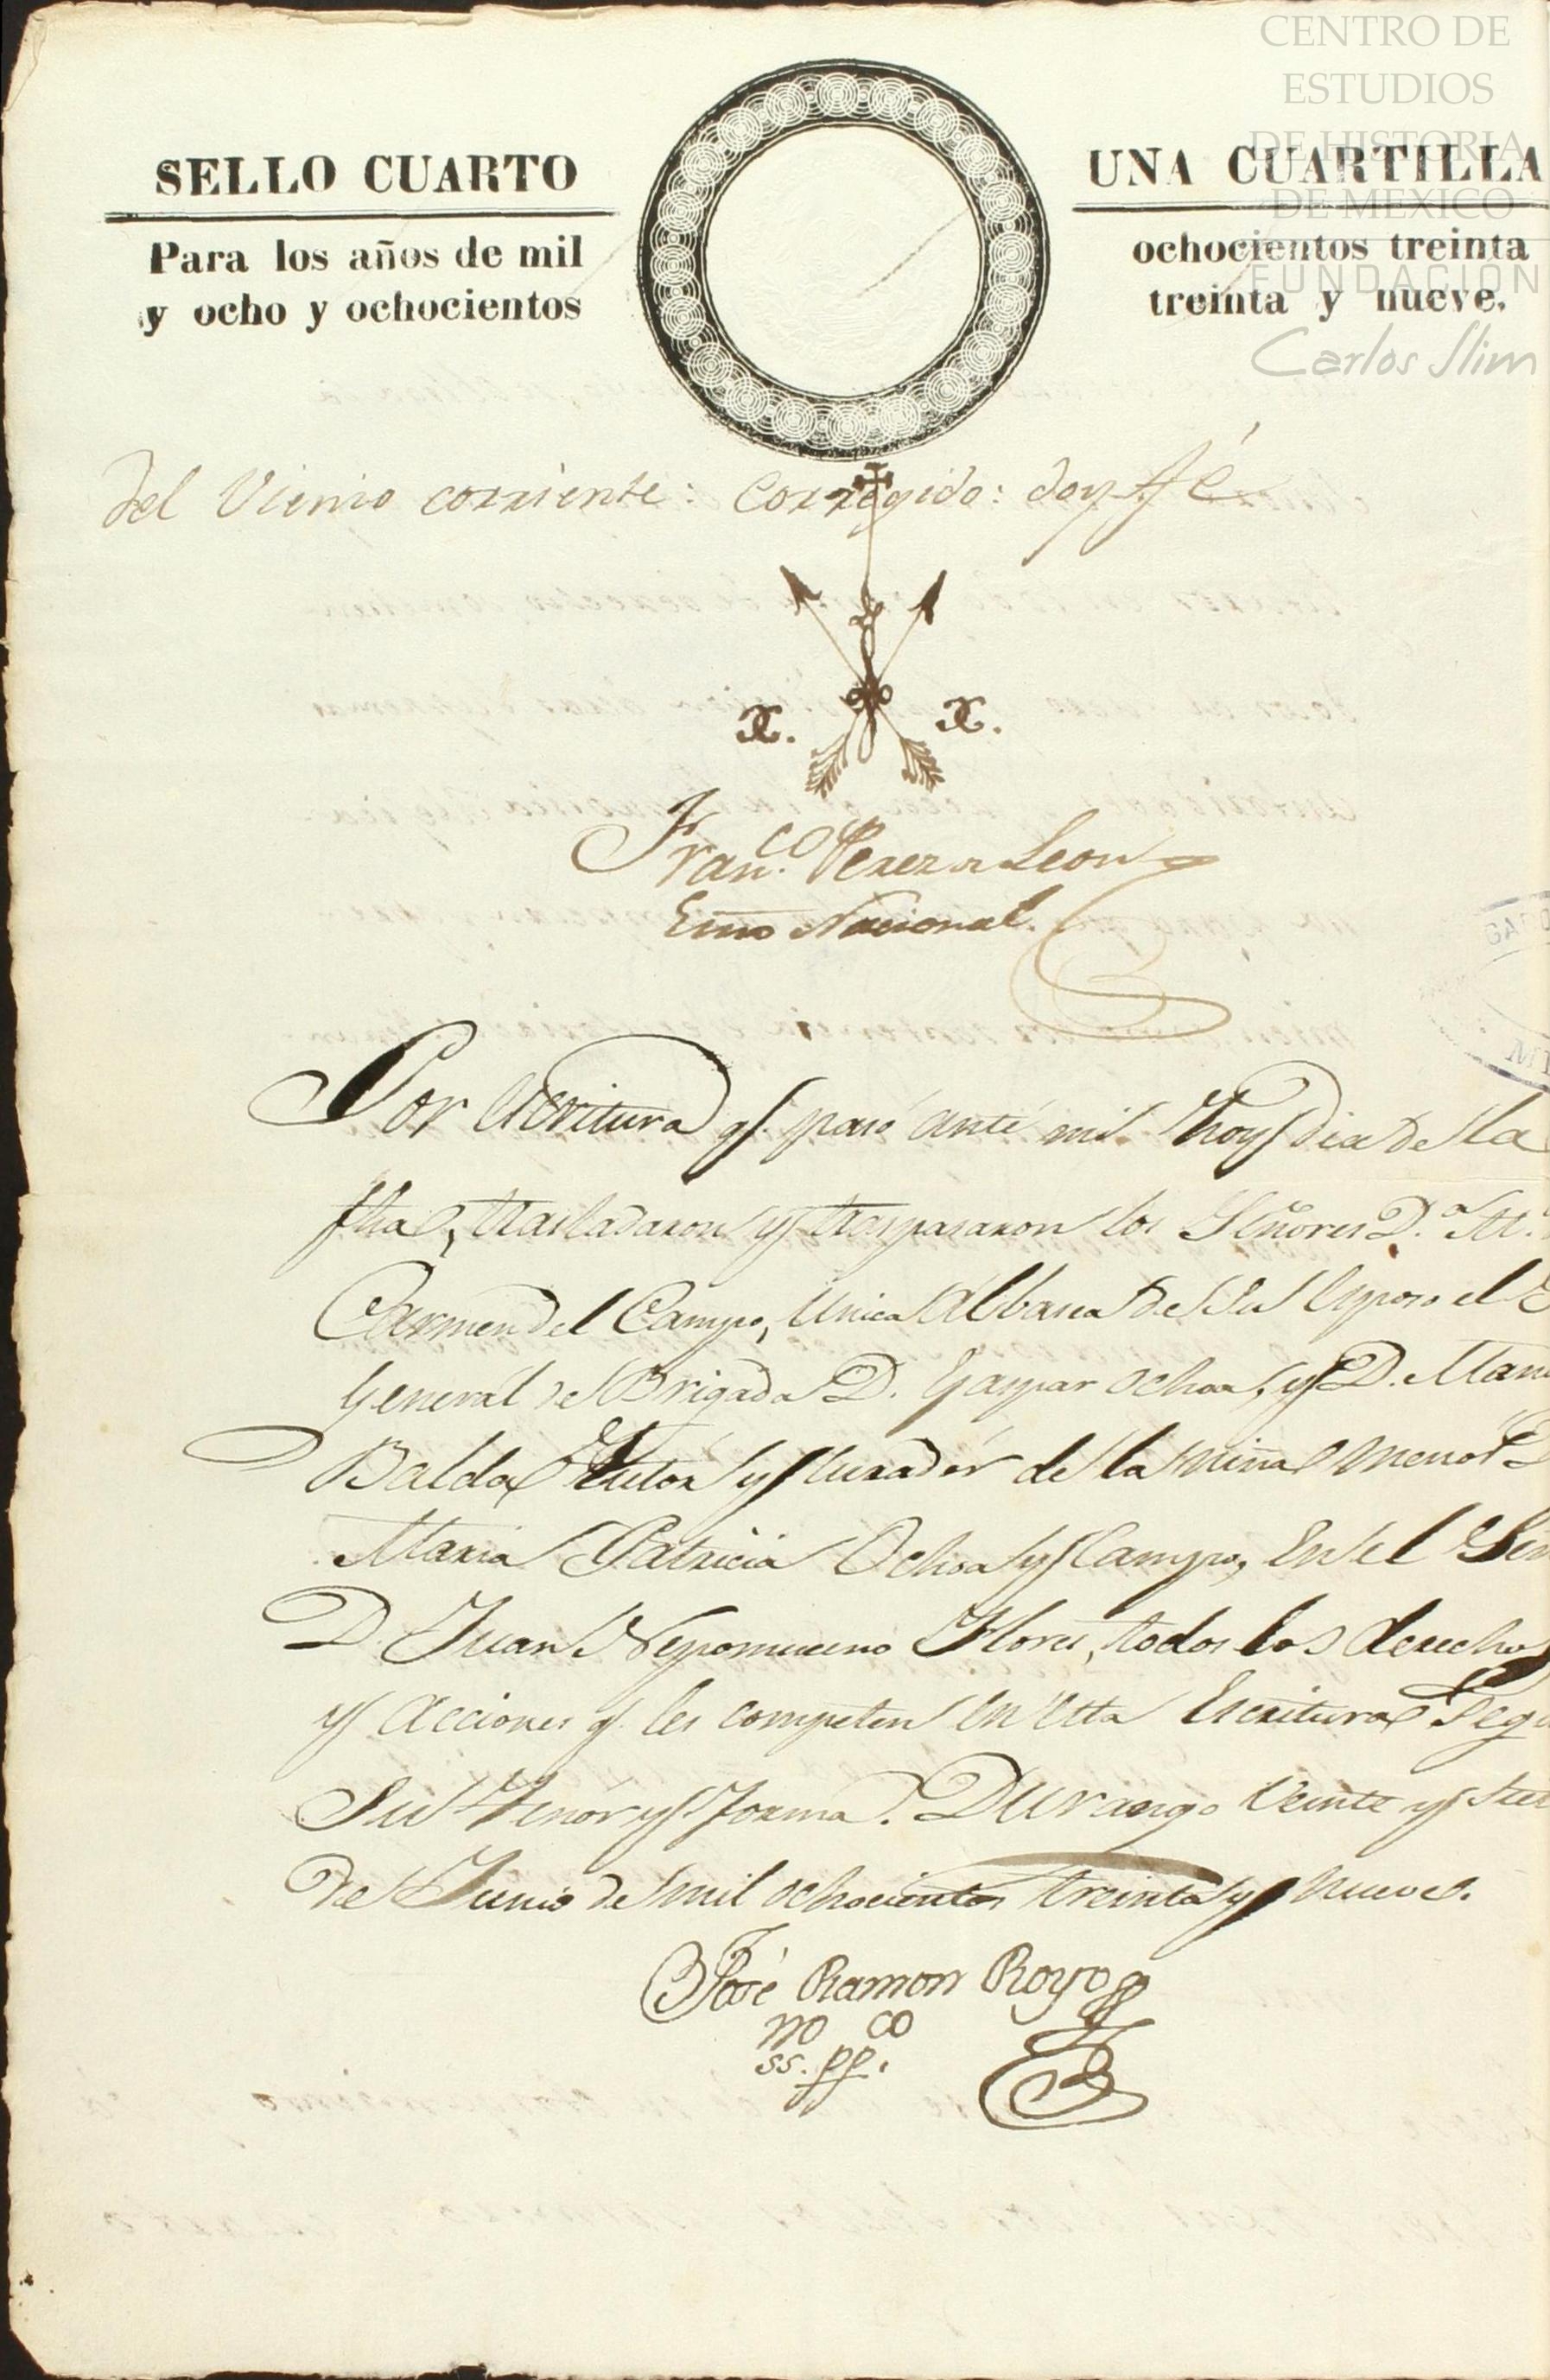 CENTRO DE
ESTUDIOS
DE HISTORIA
DE MEXICO
FUNDACIÓN
Carlos Slim
SELLO CUARTO
UNA CUARTILLA
Para los años de mil ochocientos treinta
y ocho y ochocientos treinta y nueve.
del Vienio corriente: Corregido: doy fé
X. X.
Fran.co Perez de Leon
Esno Nacional.
Por Escritura q. pasó ante mi hoy dia de la
fha, trasladaron y traspasaron los Señores D.a M.
Carmen del Campo, unica Albasea de su Esposo el
General de Brigada D. Gaspar Ochoa, y D. Man
Balda Tutor y Curador de la niña menor D
Maria Patricia Ochoa y Campo, en el Señ
D. Juan Nepomuceno Flores, todos los derechos
y acciones q. les competen en esta Escritura Segu
su tenor y forma. Durango Veinte y
de Junio de mil ochocientos treinta y nueve.
José Ramon Royo
no co
ss. pp.